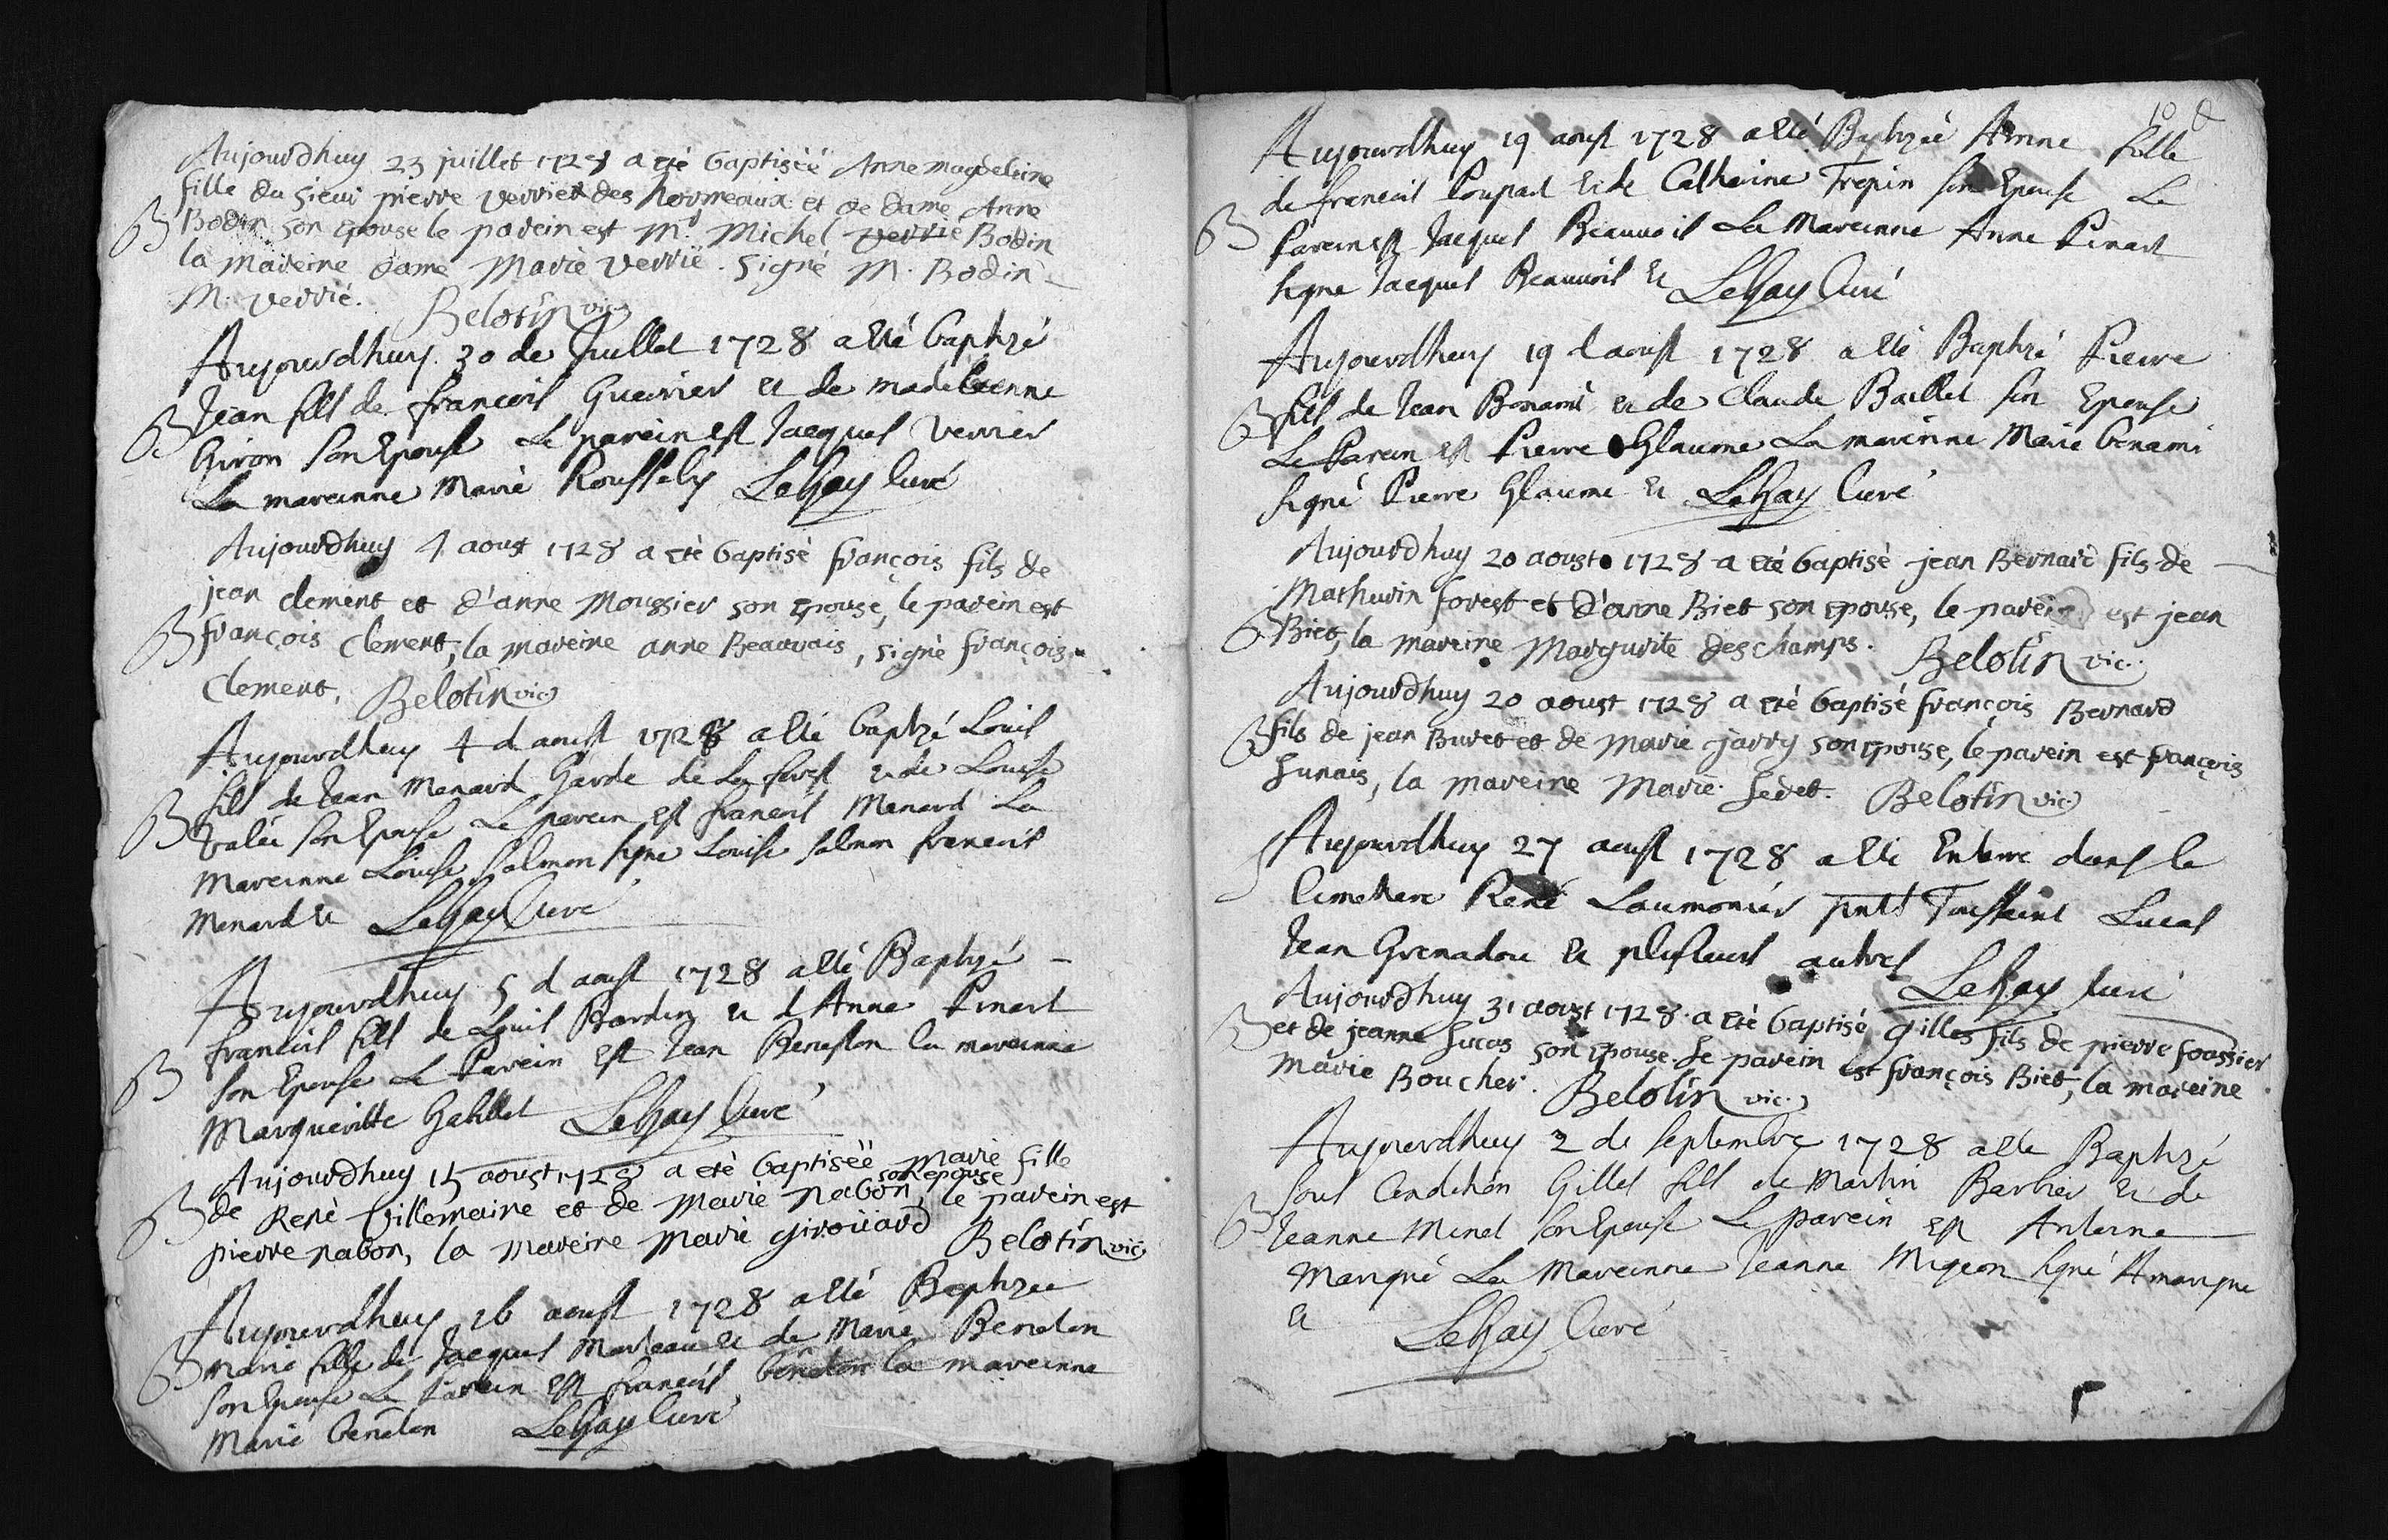 Aujourdhuy 23 juillet 1728 a eté baptiséë Anne magdeleine
fille du sieur pierre verrier des hormeaux et de dame Anne
B Bodin son epouse le parein est Mr Michel verrie Bodin
la mareine dame Marie verrié. signé M. Bodin
M. verrié. Belotin vic.
Aujourdhuy 30 de Juillet 1728 a eté baptizé
Jean fils de francois Guerrier et de madeleenne
B Giron son Epouse Le parein est Jacques verrier
La mareinne Marie Roussely LeHay Curé
Aujourdhuy 4 aoust 1728 a eté baptisé françois fils de
jean clement et d'anne Moussier son epouse, le parein est
B françois clement, la mareine anne Beauvais, signé françois
clement. Belotin vic
Aujourdhuy 4 d aoust 1728 a eté baptizé Louis
fils de Jean Menard Garde de La forest et de Louise
B valée son Epouse Le parein est francois Menard La
Mareinne Louise salmon signé Louise salmon francois
Menard et LeHay Curé
Aujourdhuy 5 d aoust 1728 a eté Baptizé
francois fils de Louis Bardin et d Anne Pinart
B son Epouse Le Parein est Jean la mareinne
Margueritte LeHay Curé
Aujourdhuy 15 aoust 1728 a eté baptiséë marie fille
son epouse
B de René Villemaine et de Marie nabon, le parein est
pierre nabon, la mareine Marie giroüard Belotin vic
Aujourdhuy 16 aoust 1728 a eté Baptizee
B Marie fille de Jacques Marteau et de Marie Beneton
son Epouse Le Parein est francois beneton la mareinne
Marie beneton LeHay Curé
10
Aujourdhuy 19 aoust 1728 a eté Baptizeé Anne fille
de francois Poupart et de Catherine Trepin son Epouse Le
B Parein est Jacques Beauvois La Mareinne Anne Pinart
signé Jacques Beauvois et LeHay Curé
Aujourdhuy 19 d aoust 1728 a eté Baptizé Pierre
B fils de Jean Bonami et de Claude Baillet son Epouse
Le Parein est Pierre Glaume La mareinne Marie bonami
signé Pierre Glaume et LeHay Curé
Aujourdhuy 20 aoust 1728 a eté baptisé jean Bernard fils de
Mathurin forest et d'anne Biet son epouse, le parein est jean
B Biet, la mareine Margurite deschamps. Belotin vic.
Aujourdhuy 20 aoust 1728 a eté baptisé françois Bernard
B fils de jean Buret et de Marie jarry son epouse, le parein est françois
Lunais, la mareine Marie Ledet. Belotin vic
Aujourdhuy 27 aoust 1728 a eté Enterré dans le
S Cimetiere René Laumonier pnts Toussaint Lucas
Jean Grenadou et plusieurs autres LeHay Curé
Aujourdhuy 31 aoust 1728 a eté baptisé gilles fils de pierre foassier
B et de jeanne Lucas son epouse. Le parein est françois Biet, la mareine
Marie Boucher. Belotin vic.
Aujourdhuy 2 de septembre 1728 a eté Baptizé
sous Condition Gilles fils de Martin Barbier et de
B Jeanne Minet son Epouse Le parein est Antoine
Marqué La Mareinne Jeanne Migeon signé A marque
et LeHay Curé